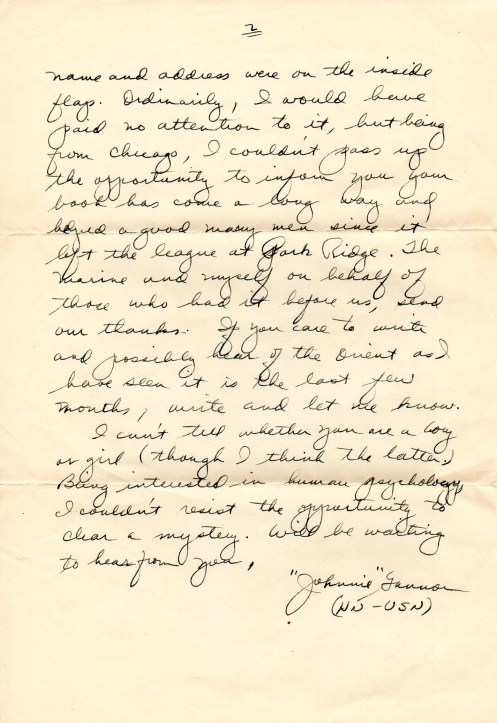 2
name and address were on the inside
flap. Ordinarily, I would have
paid no attention to it, but being
from Chicago, I couldn't pass up
the opportunity to inform you your
book has come a long way and
helped a good many men since it
left the league at Park Ridge. The
marine and myself on behalf of
those who had it before us, send
our thanks. If you care to write
and possibly hear of the Orient as I
have seen it is the last few
months, write and let me know.
I can't tell whether you are a boy
or girl (though I think the latter.)
Being interested in human psychology,
I couldn't resist the opportunity to
clear a mystery. Will be waiting
to hear from you,
"Johnnie" Gannon
(HN-USN)